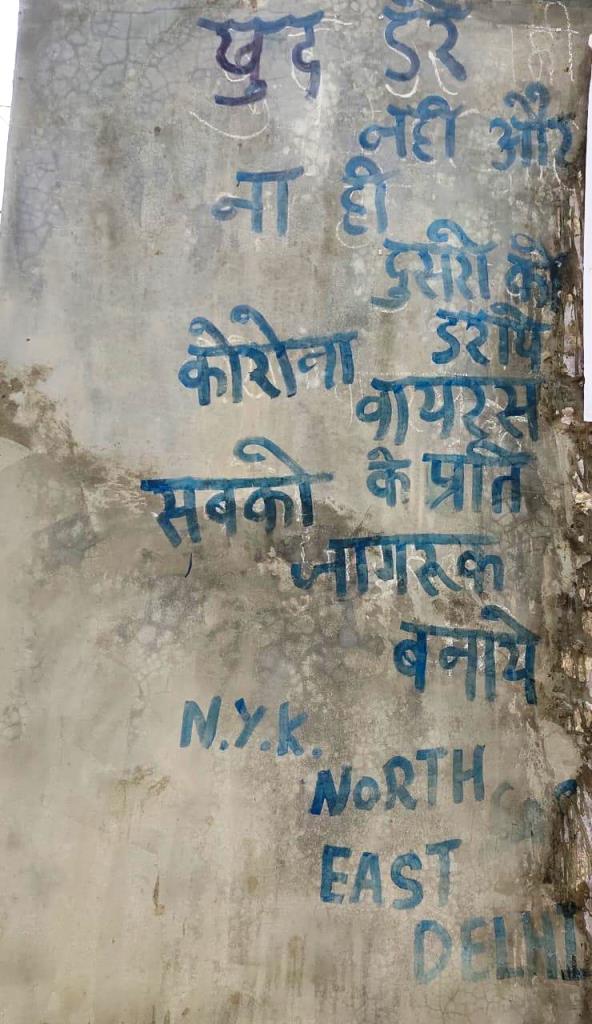 खुद डरे
नही और
ना ही
दुसरो को
डराये
कोरोना
वायरस
के प्रति
सबको
जागरूक
बनाये
N.Y.K.
NORTH
EAST
DELHI